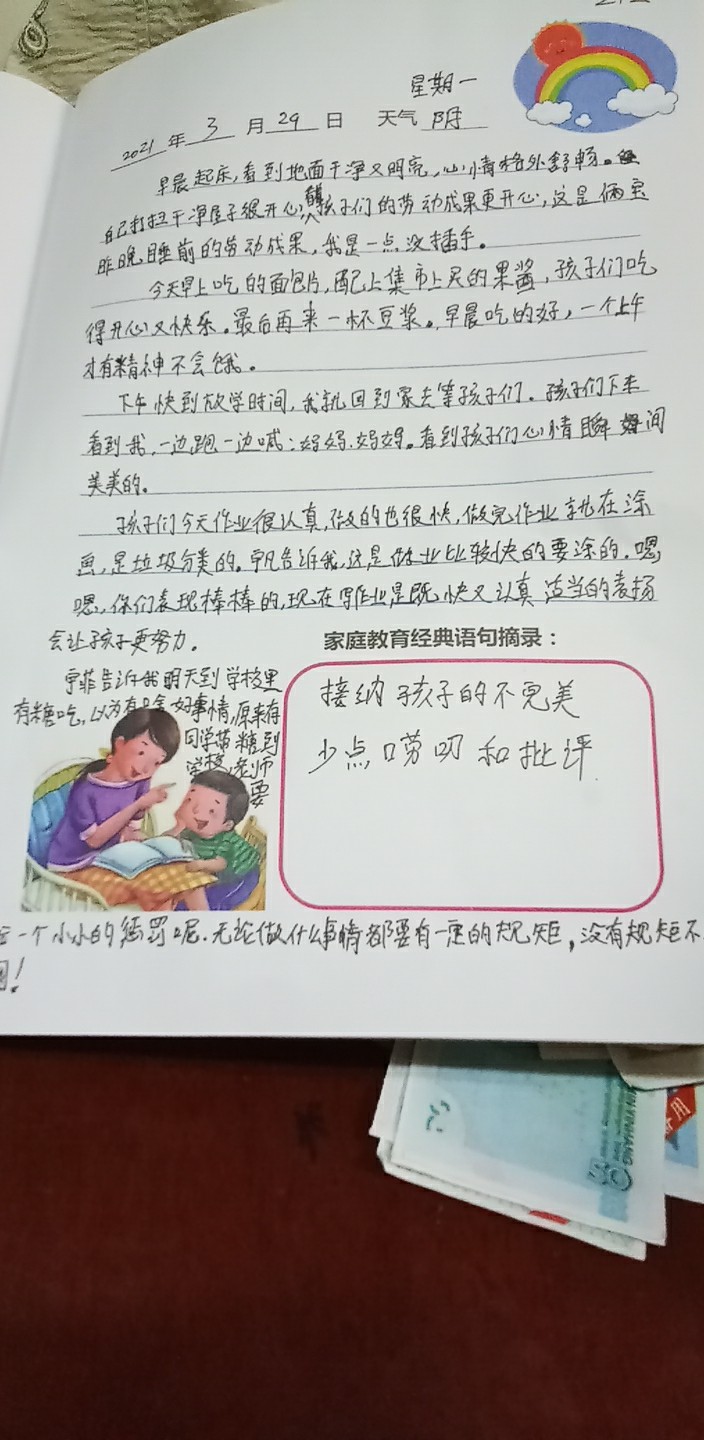 星期一
2021 年 3 月 29 日 天气 阴
早晨起床,看到地面干净又明亮,心情格外舒畅。
自己打扫干净屋子很开心,孩子们的劳动成果更开心,这是俩宝
昨晚睡前的劳动成果,我是一点没插手。
今天早上吃的面包片,配上集市上买的果酱,孩子们吃
得开心又快乐。最后再来一杯豆浆。早晨吃的好,一个上午
才有精神不会饿。
下午快到放学时间,我就回到家去等孩子们.孩子们下来
看到我,一边跑一边喊:妈妈.妈妈。看到孩子们心情瞬间
美美的。
孩子们今天作业很认真,做的也很快,做完作业就在涂
画,是垃圾分类的。告诉我,这是作业比较快的要涂的.嗯,
嗯,你们表现棒棒的,现在写作业是既快又认真 适当的表扬
会让孩子更努力.
家庭教育经典语句摘录:
菲告诉我明天到学校里
有糖吃,以为有啥好事情,原来有
同学带糖到
学校,老师
要
接纳孩子的不完美
少点唠叨和批评.
一个小小的惩罚呢.无论做什么事情都要有一定的规矩,没有规矩不
!